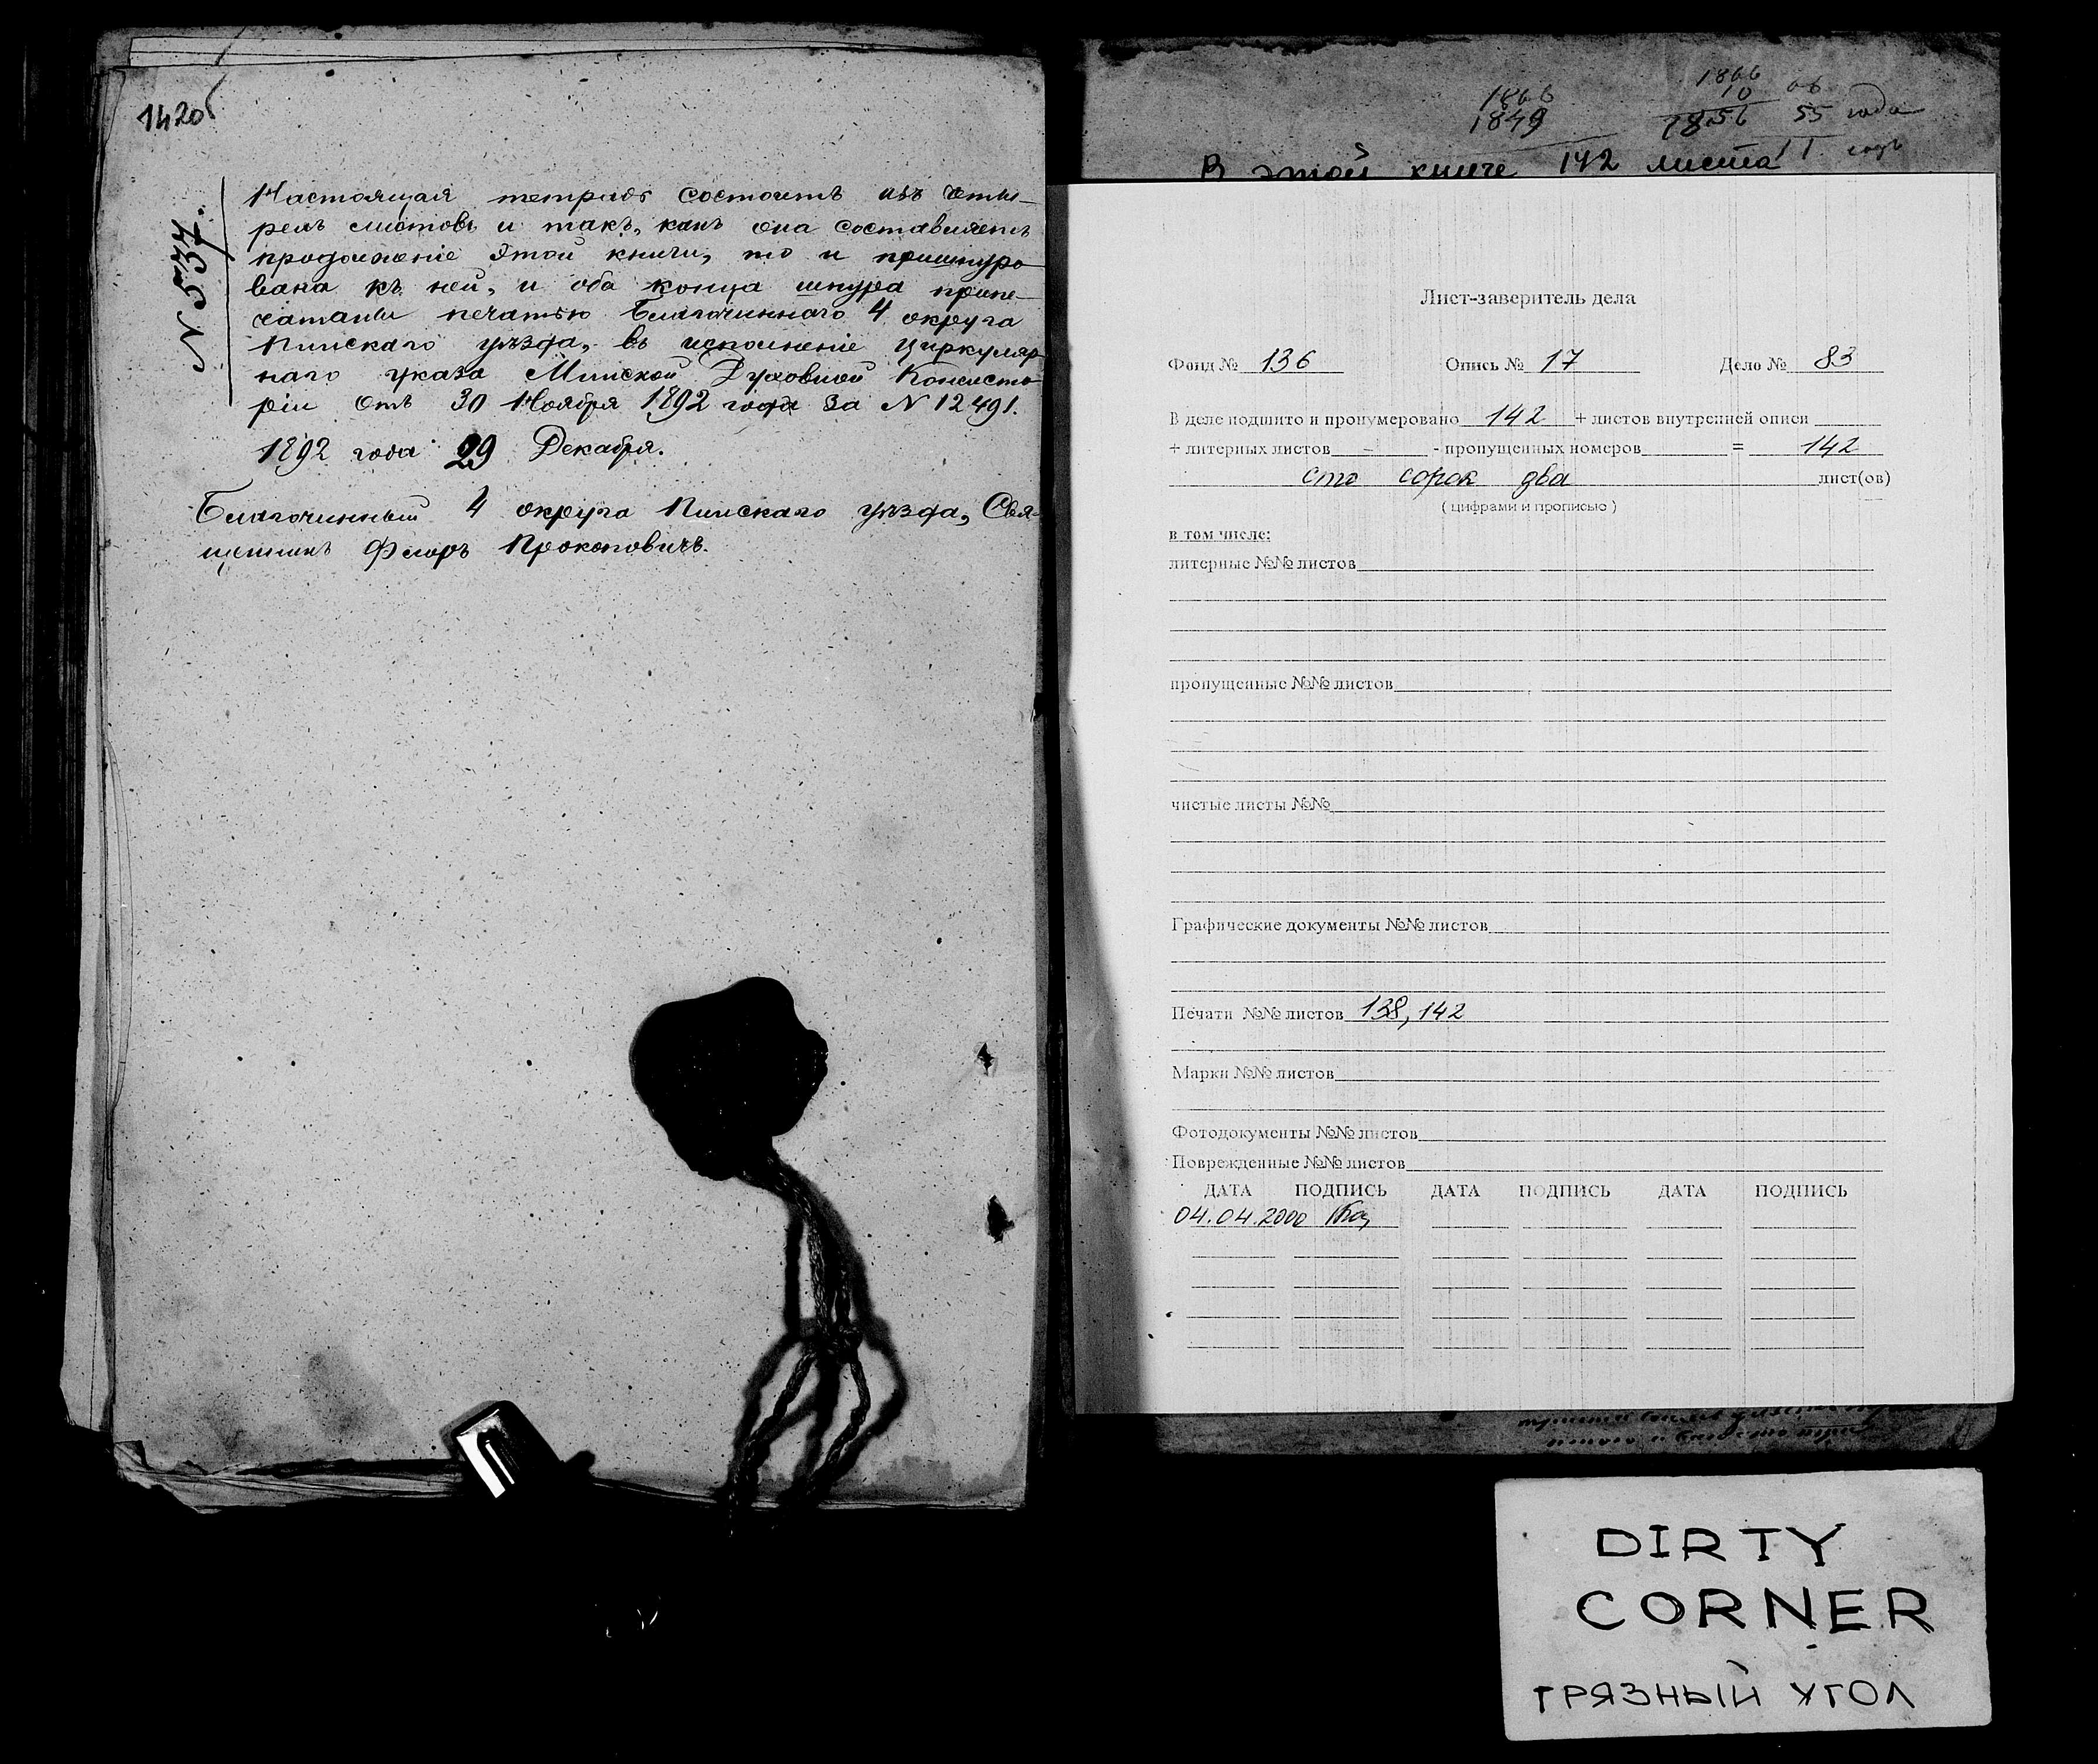 142об
№ 534.
Настоящая тетрадь состоитъ изъ четы-
рехъ листовъ и такъ, какъ она составляетъ
продолженіе этой книги, то и пришнуро-
вана къ ней, и оба конца шнура припе-
чатаны печатью Благочиннаго 4 округа
Пинскаго уѣзда, въ исполненіе циркуляр-
наго указа Минской Духовной Консисто-
ріи отъ 30 Ноября 1892 года за N 12491.
1892 года 29 Декабря.
Благочинный 4 округа Пинскаго уѣзда, Свя-
щенникъ Флоръ Прокоповичъ.
1866
1849
1866
10
1856
55 года
11
В этой книге 142 листа
Лист-заверитель дела
Фонд № 136 Опись № 17 Дело № 83
В деле подшито и пронумеровано 142 + листов внутренней описи
+ литерных листов - - пропущенных номеров = 142
сто сорок два лист(ов)
( цифрами и прописью )
в том числе:
литерные №№ листов
пропущенные №№ листов
чистые листы №№
Графические документы №№ листов
Печати №№ листов 138, 142
Марки №№ листов
Фотодокументы №№ листов
Поврежденные №№ листов
ДАТА ПОДПИСЬ ДАТА ПОДПИСЬ ДАТА ПОДПИСЬ
04.04.2000
DIRTY
CORNER
ГРЯЗНЫЙ УГОЛ